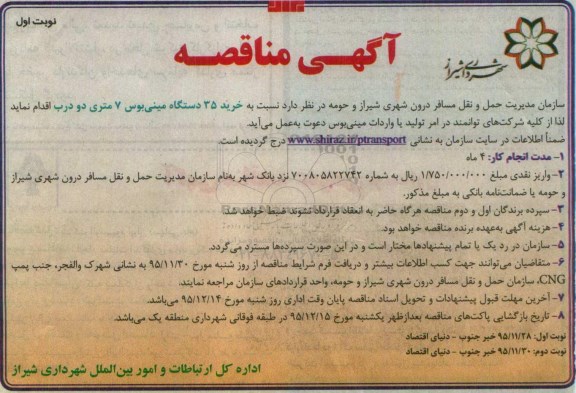 نوبت اول
شهرداری شیراز
آگهـی مناقصـه
سازمان مدیریت حمل و نقل مسافر درون شهری شیراز و حومه در نظر دارد نسبت به خرید ۳۵ دستگاه مینی‌بوس ۷ متری دو درب اقدام نماید
لذا از کلیه شرکت‌های توانمند در امر تولید یا واردات مینی‌بوس دعوت به‌عمل می‌آید.
ضمناً اطلاعات در سایت سازمان به نشانی www.shiraz.ir/ptransport درج گردیده است.
۱- مدت انجام کار: ۴ ماه
۲- واریز نقدی مبلغ ۱/۷۵۰/۰۰۰/۰۰۰ ریال به شماره ۷۰۰۸۰۵۸۲۲۷۴۲ نزد بانک شهر به‌نام سازمان مدیریت حمل و نقل مسافر درون شهری شیراز
و حومه یا ضمانت‌نامه بانکی به مبلغ مذکور.
۳- سپرده برندگان اول و دوم مناقصه هرگاه حاضر به انعقاد قرارداد نشوند ضبط خواهد شد.
۴- هزینه آگهی به‌عهده برنده مناقصه خواهد بود.
۵- سازمان در رد یک یا تمام پیشنهادها مختار است و در این صورت سپرده‌ها مسترد می‌گردد.
۶- متقاضیان می‌توانند جهت کسب اطلاعات بیشتر و دریافت فرم شرایط مناقصه از روز شنبه مورخ ۹۵/۱۱/۳۰ به نشانی شهرک والفجر، جنب پمپ
CNG، سازمان حمل و نقل مسافر درون شهری شیراز و حومه، واحد قراردادهای سازمان مراجعه نمایند.
۷- آخرین مهلت قبول پیشنهادات و تحویل اسناد مناقصه پایان وقت اداری روز شنبه مورخ ۹۵/۱۲/۱۴ می‌باشد.
۸- تاریخ بازگشایی پاکت‌های مناقصه بعدازظهر یکشنبه مورخ ۹۵/۱۲/۱۵ در طبقه فوقانی شهرداری منطقه یک می‌باشد.
نوبت اول: ۹۵/۱۱/۲۸ خبر جنوب - دنیای اقتصاد
نوبت دوم: ۹۵/۱۱/۳۰ خبر جنوب - دنیای اقتصاد
اداره کل ارتباطات و امور بین‌الملل شهرداری شیراز